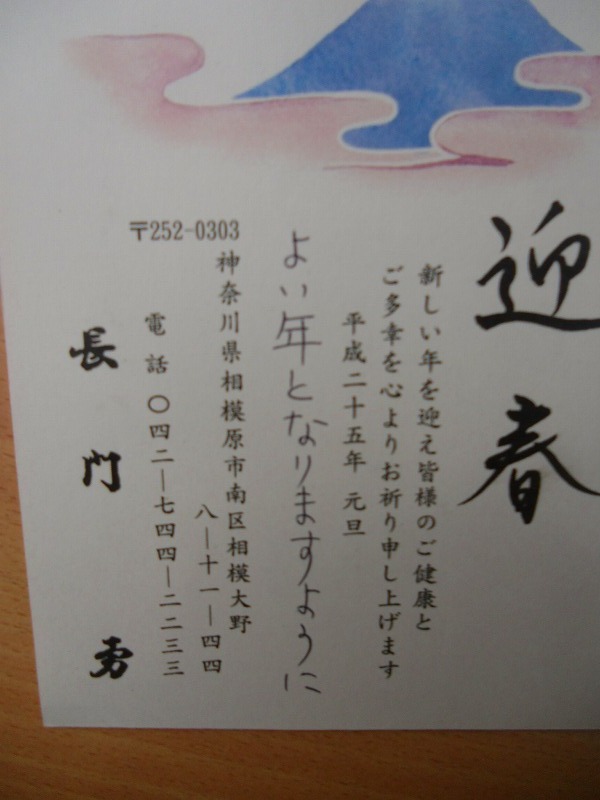 迎春
新しい年を迎え皆様のご健康と
ご多幸を心よりお祈り申し上げます
平成二十五年 元旦
よい年となりますように
〒252-0303
神奈川県相模原市南区相模大野
八―十一―四四
電話 〇四二―七四四―二二三三
長門勇